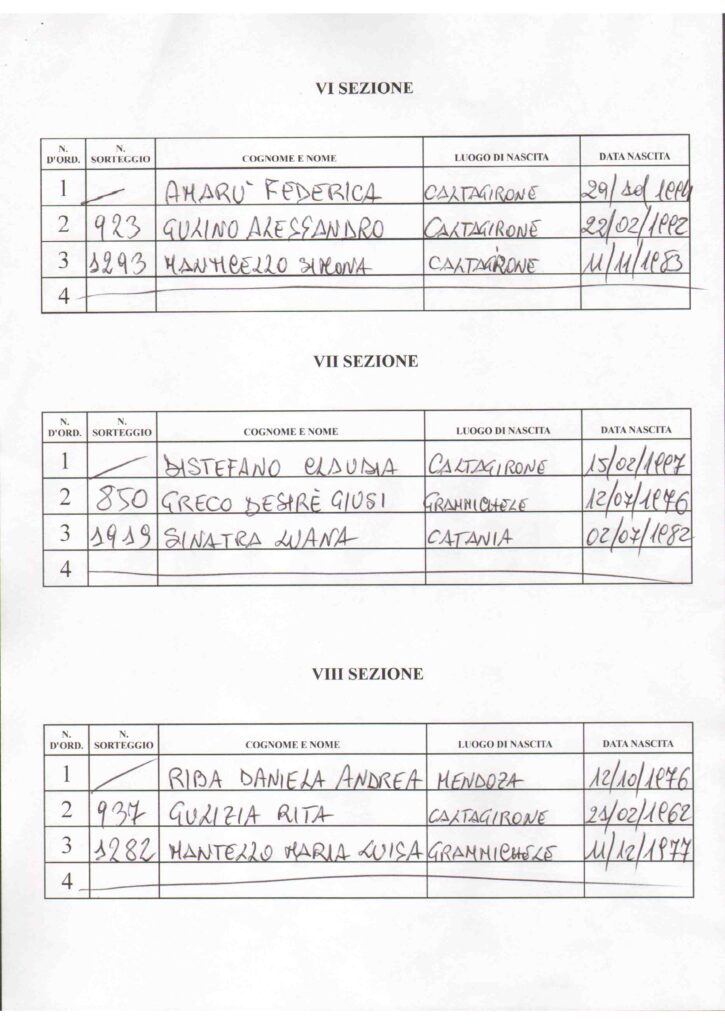 VI SEZIONE
N. D'ORD. N. SORTEGGIO COGNOME E NOME LUOGO DI NASCITA DATA NASCITA
1 AMARU' FEDERICA CALTAGIRONE 29/10/1994
2 923 GULINO ALESSANDRO CALTAGIRONE 22/02/1992
3 1293 SIMONA CALTAGIRONE 11/11/1983
4
VII SEZIONE
N. D'ORD. N. SORTEGGIO COGNOME E NOME LUOGO DI NASCITA DATA NASCITA
1 DISTEFANO CLAUDIA CALTAGIRONE 15/02/1997
2 850 GRECO DESIRÈ GIUSI GRAMMICHELE 12/07/1976
3 1919 SINATRA LUANA CATANIA 02/07/1982
4
VIII SEZIONE
N. D'ORD. N. SORTEGGIO COGNOME E NOME LUOGO DI NASCITA DATA NASCITA
1 RIBA DANIELA ANDREA MENDOZA 12/10/1976
2 937 GULIZIA RITA CALTAGIRONE 21/02/1962
3 1282 MANTELLO MARIA LUISA GRAMMICHELE 11/12/1977
4